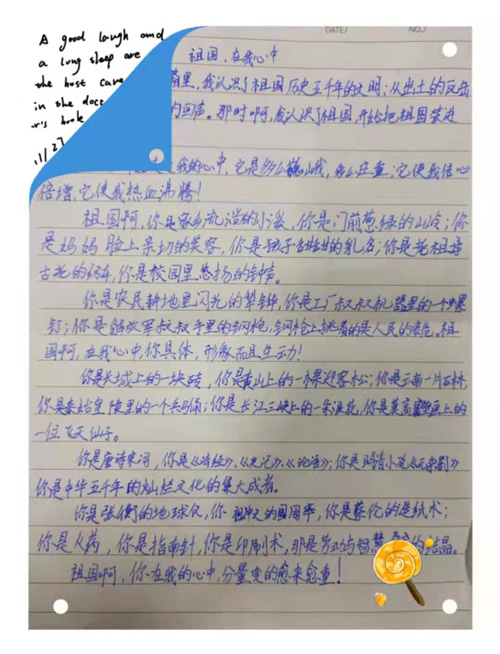 A good laugh and
a long sleep are
the best cure
in the doct
or's book
11/27
DATE/ NO./
祖国,在我心中
里,我认识了祖国历史五千年的文明;从出土的
的回声。那时啊,我认识了祖国,开始把祖国装进
我的心中,它是多么巍峨,多么庄重;它使我信心
倍增,它使我热血沸腾!
祖国啊,你是家乡流淌的小溪,你是门前葱绿的山岭;你
是妈妈脸上亲切的笑容,你是孩子甜甜的乳名;你是爸爸
古老的,你是校园里悠扬的钟声。
你是农民耕地里闪光的犁铧,你是工厂叔叔机器里的一个螺
钉;你是解放军叔叔手里的钢枪,钢枪上挑着的是人民的。祖
国啊,在我心中,你具体,形象而且生动!
你是长城上的一块砖,你是黄山上的一棵迎客松;你是云南一片石林,
你是秦始皇陵里的一个兵马俑;你是长江三峡上的一朵浪花,你是莫高窟上的
一位飞天仙子。
你是唐诗宋词,你是《诗经》、《史记》、《论语》;你是明清小说《元杂剧》
你是中华五千年的灿烂文化的集大成者。
你是张衡的地球仪,你祖冲之的圆周率,你是蔡伦的造纸术;
你是火药,你是指南针,你是印刷术,那是智慧的结晶。
祖国啊,你在我的心中,分量变的愈来愈重!